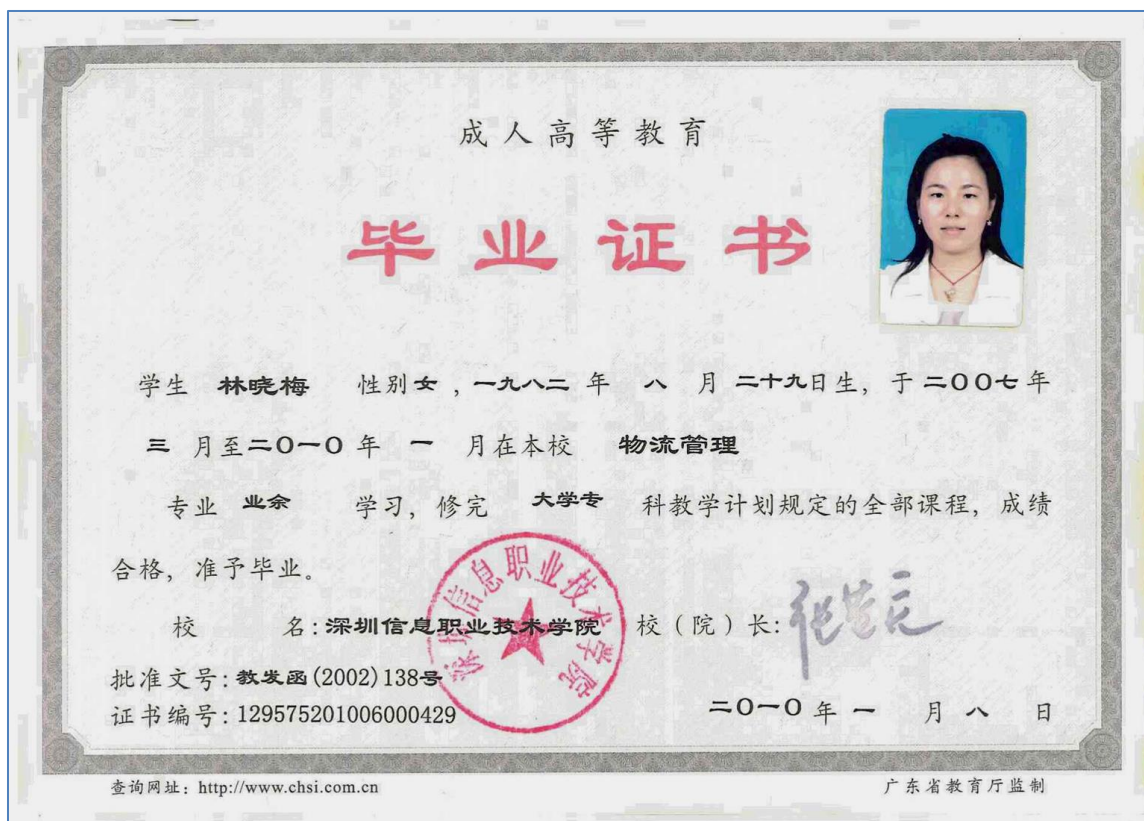 成人高等教育
毕业证书
学生 林晓梅 性别女，一九八二 年 八 月 二十九日生，于 二〇〇七 年
三 月至二〇一〇 年 一 月在本校 物流管理
专业 业余 学习，修完 大学专 科教学计划规定的全部课程，成绩
合格，准予毕业。
深圳信息职业技术学院
校 名：深圳信息职业技术学院 校（院）长：
批准文号：教发函(2002)138号
证书编号：129575201006000429 二〇一〇 年 一 月 八 日
查询网址：http://www.chsi.com.cn 广东省教育厅监制